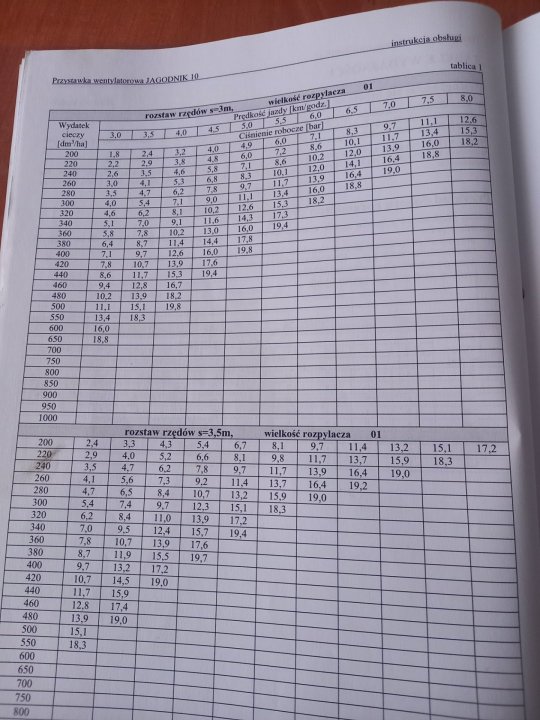 instrukcja obsługi
Przystawka wentylatorowa JAGODNIK 10
tablica 1
rozstaw rzędów s=3m, wielkość rozpylacza 01
Wydatek cieczy [dm³/ha]
Prędkość jazdy [km/godz.]
3,0 3,5 4,0 4,5 5,0 5,5 6,0 6,5 7,0 7,5 8,0
Ciśnienie robocze [bar]
200 1,8 2,4 3,2 4,0 4,9 6,0 7,1 8,3 9,7 11,1 12,6
220 2,2 2,9 3,8 4,8 6,0 7,2 8,6 10,1 11,7 13,4 15,3
240 2,6 3,5 4,6 5,8 7,1 8,6 10,2 12,0 13,9 16,0 18,2
260 3,0 4,1 5,3 6,8 8,3 10,1 12,0 14,1 16,4 18,8
280 3,5 4,7 6,2 7,8 9,7 11,7 13,9 16,4 19,0
300 4,0 5,4 7,1 9,0 11,1 13,4 16,0 18,8
320 4,6 6,2 8,1 10,2 12,6 15,3 18,2
340 5,1 7,0 9,1 11,6 14,3 17,3
360 5,8 7,8 10,2 13,0 16,0 19,4
380 6,4 8,7 11,4 14,4 17,8
400 7,1 9,7 12,6 16,0 19,8
420 7,8 10,7 13,9 17,6
440 8,6 11,7 15,3 19,4
460 9,4 12,8 16,7
480 10,2 13,9 18,2
500 11,1 15,1 19,8
550 13,4 18,3
600 16,0
650 18,8
700
750
800
850
900
950
1000
rozstaw rzędów s=3,5m, wielkość rozpylacza 01
200 2,4 3,3 4,3 5,4 6,7 8,1 9,7 11,4 13,2 15,1 17,2
220 2,9 4,0 5,2 6,6 8,1 9,8 11,7 13,7 15,9 18,3
240 3,5 4,7 6,2 7,8 9,7 11,7 13,9 16,4 19,0
260 4,1 5,6 7,3 9,2 11,4 13,7 16,4 19,2
280 4,7 6,5 8,4 10,7 13,2 15,9 19,0
300 5,4 7,4 9,7 12,3 15,1 18,3
320 6,2 8,4 11,0 13,9 17,2
340 7,0 9,5 12,4 15,7 19,4
360 7,8 10,7 13,9 17,6
380 8,7 11,9 15,5 19,7
400 9,7 13,2 17,2
420 10,7 14,5 19,0
440 11,7 15,9
460 12,8 17,4
480 13,9 19,0
500 15,1
550 18,3
600
650
700
750
800